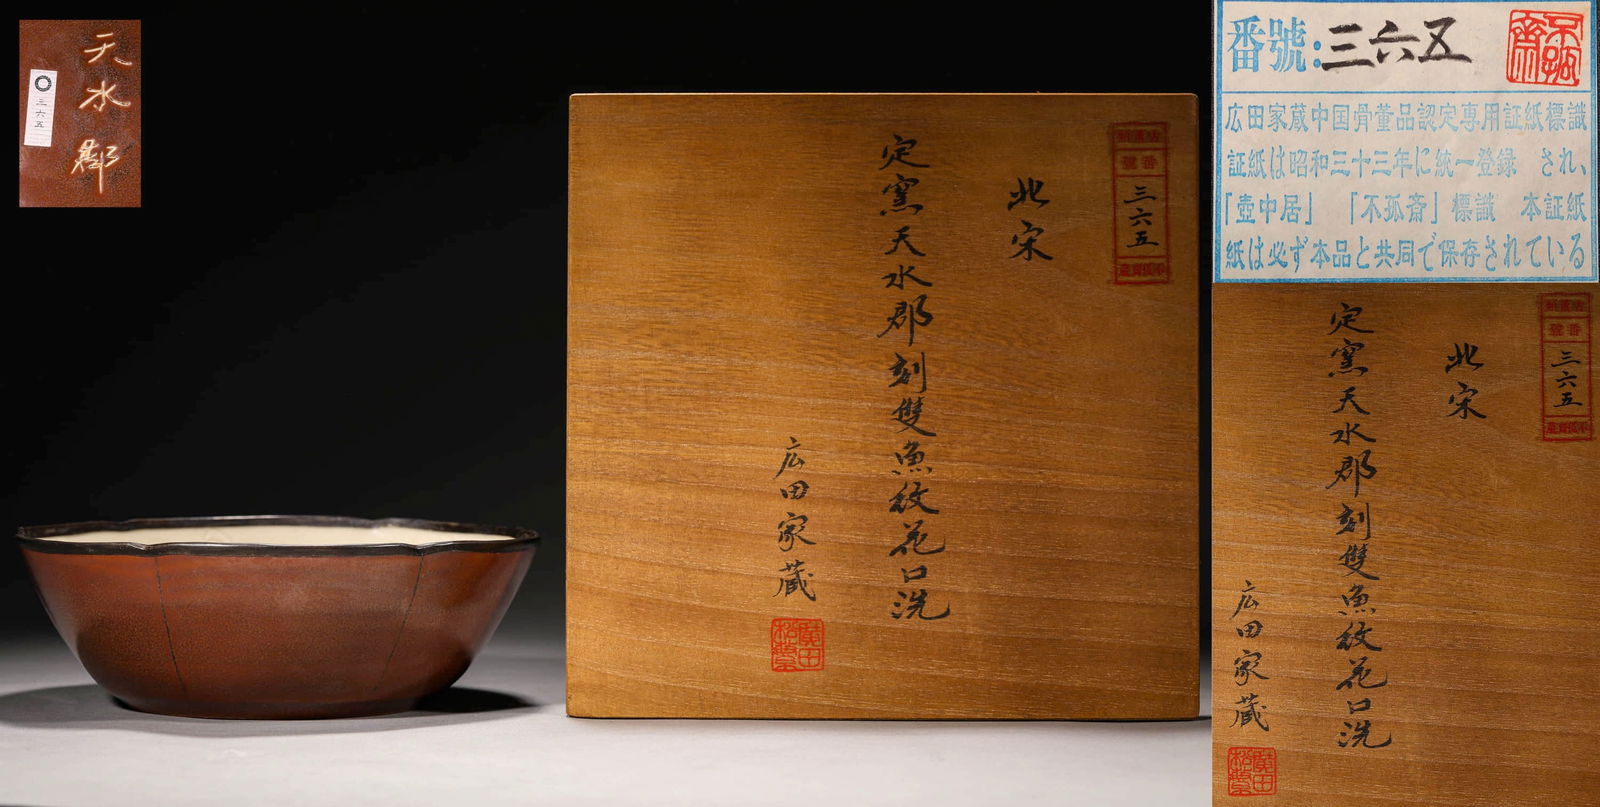 天水郡
三六五
北宋
定窯天水郡刻雙魚紋花口洗
広田家蔵
番號
三六五
番號:三六五
不孤齋
広田家蔵中国骨董品認定専用証紙標識
証紙は昭和三十三年に統一登録 され、
「壺中居」 「不孤斎」標識 本証紙
紙は必ず本品と共同で保存されている
北宋
定窯天水郡刻雙魚紋花口洗
広田家蔵
番號
三六五